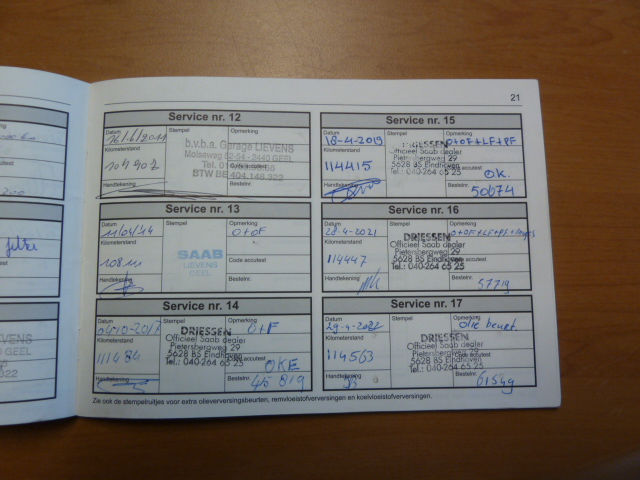 21
Service nr. 12
Datum
Stempel
Opmerking
Kilometerstand
b.v.b.a. Garage LIEVENS
Molseweg 52-54 - 2440 GEEL
BTW BE 404.148.322
Handtekening
Bestelnr.
Service nr. 13
Datum
Stempel
Opmerking
11/04/14
O+OF
Kilometerstand
SAAB
LIEVENS
GEEL
Code accutest
Handtekening
Bestelnr.
Service nr. 14
Datum
Stempel
Opmerking
O+F
Kilometerstand
111484
DRIESSEN
Officieel Saab dealer
Pietersbergweg 29
5628 BS Eindhoven
Tel.: 040-264 65 25
OKE
Handtekening
Bestelnr.
Service nr. 15
Datum
Stempel
Opmerking
18-4-2019
O+OF+LF+PF
Kilometerstand
114415
DRIESSEN
Officieel Saab dealer
Pietersbergweg 29
5628 BS Eindhoven
Tel.: 040-264 65 25
OK.
Handtekening
Bestelnr.
50674
Service nr. 16
Datum
Stempel
Opmerking
28-4-2021
Kilometerstand
114447
DRIESSEN
Officieel Saab dealer
Pietersbergweg 29
5628 BS Eindhoven
Tel.: 040-264 65 25
Handtekening
Bestelnr.
57719
Service nr. 17
Datum
Stempel
Opmerking
29-4-2022
Olie beurt.
Kilometerstand
114563
DRIESSEN
Officieel Saab dealer
Pietersbergweg 29
5628 BS Eindhoven
Tel.: 040-264 65 25
Handtekening
Bestelnr.
61549
Zie ook de stempelruitjes voor extra olieverversingsbeurten, remvloeistofverversingen en koelvloeistofverversingen.